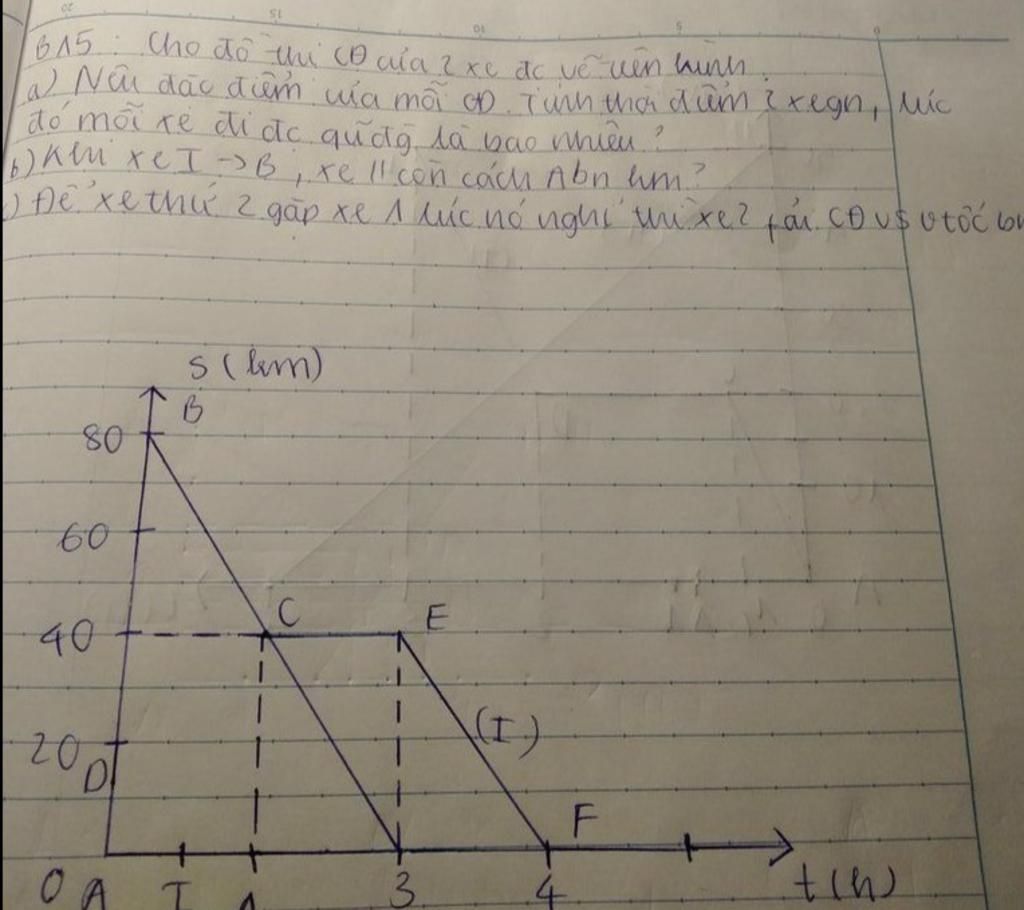 BÀ5: Cho đồ thị CĐ của 2 xe đc vẽ trên hình.
a) Nêu đặc điểm của mỗi CĐ. Tính thời điểm 2 xe gn, lúc
đó mỗi xe đi đc quãg là bao nhiêu?
b) Khi xe I → B, xe II còn cách A bn km?
c) Để xe thứ 2 gặp xe 1 lúc nó nghỉ thì xe 2 fải CĐ vs vtốc
S (km)
B
80
60
C E
40
(I)
20
D
F
O A I 3 4 t (h)